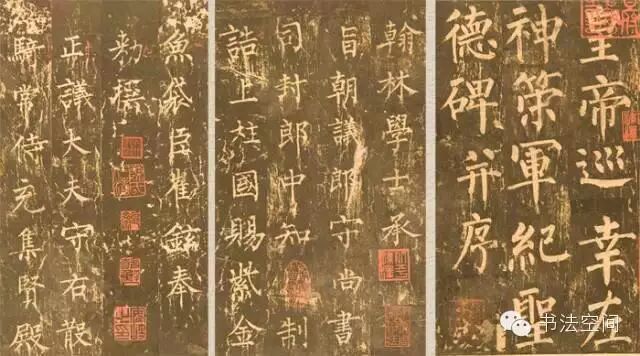 皇帝巡幸左
神策軍紀聖
德碑并序
翰林學士承
旨朝議郎守尚書
司封郎中知制
誥上柱國賜紫金
魚袋臣崔鉉奉
勑撰
正議大夫守右散
騎常侍充集賢殿
书法空间